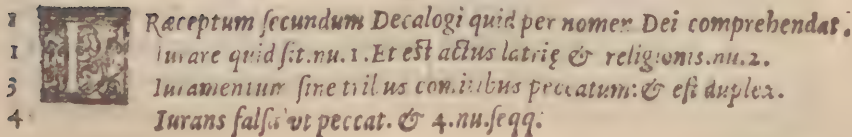 1 PRæceptum ſecundum Decalogi quid per nomen Dei comprehendat.
1 Iurare quid ſit.nu.1.Et eſt actus latrię & religionis.nu.2.
3 Iuramentum ſine tribus comitibus peccatum:& eſt duplex.
4 Iurans falſa vt peccat.& 4.nu.ſeqq.